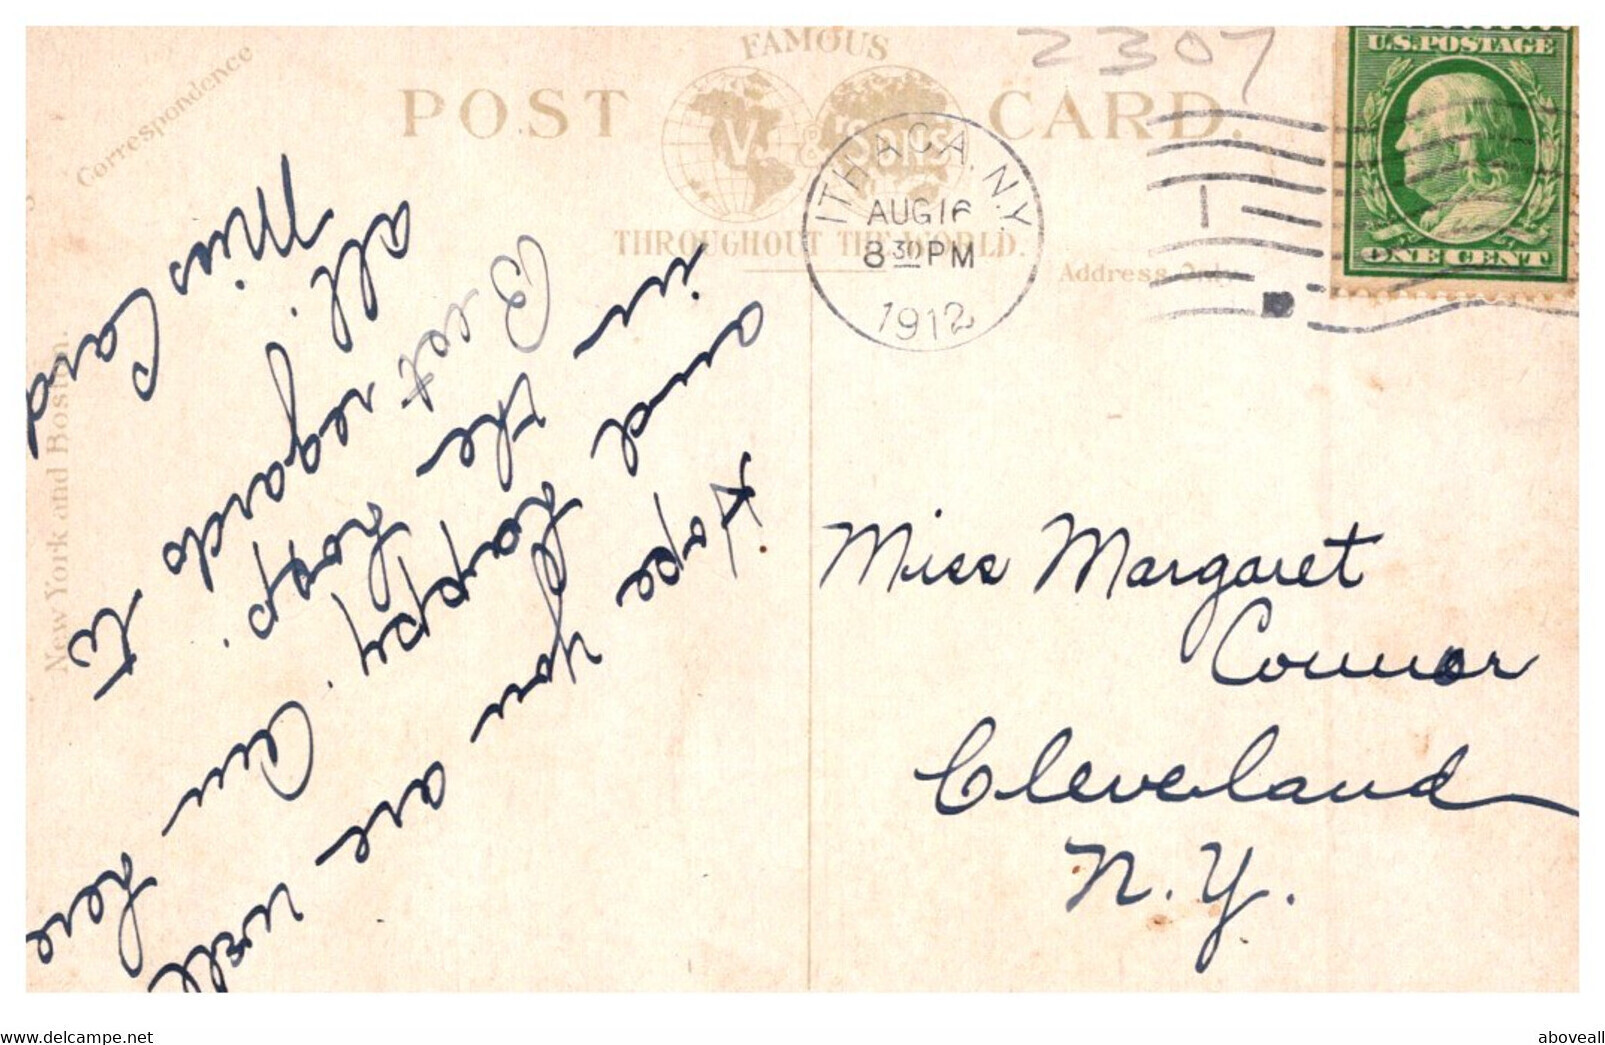 Correspondence
FAMOUS
POST CARD.
V. & Sons
THROUGHOUT THE WORLD.
Address Only
New York and Boston.
2307
ITHACA, N.Y.
AUG 16
8 30 PM
1912
U.S. POSTAGE
ONE CENT
Hope you are well
and happy. Am here
in the hosp.
Best regards to
all.
Miss Card
Miss Margaret
Connor
Cleveland
N. Y.
aboveall